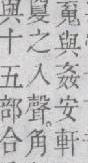 與姦安軒
夐之入聲。角
與十五部合